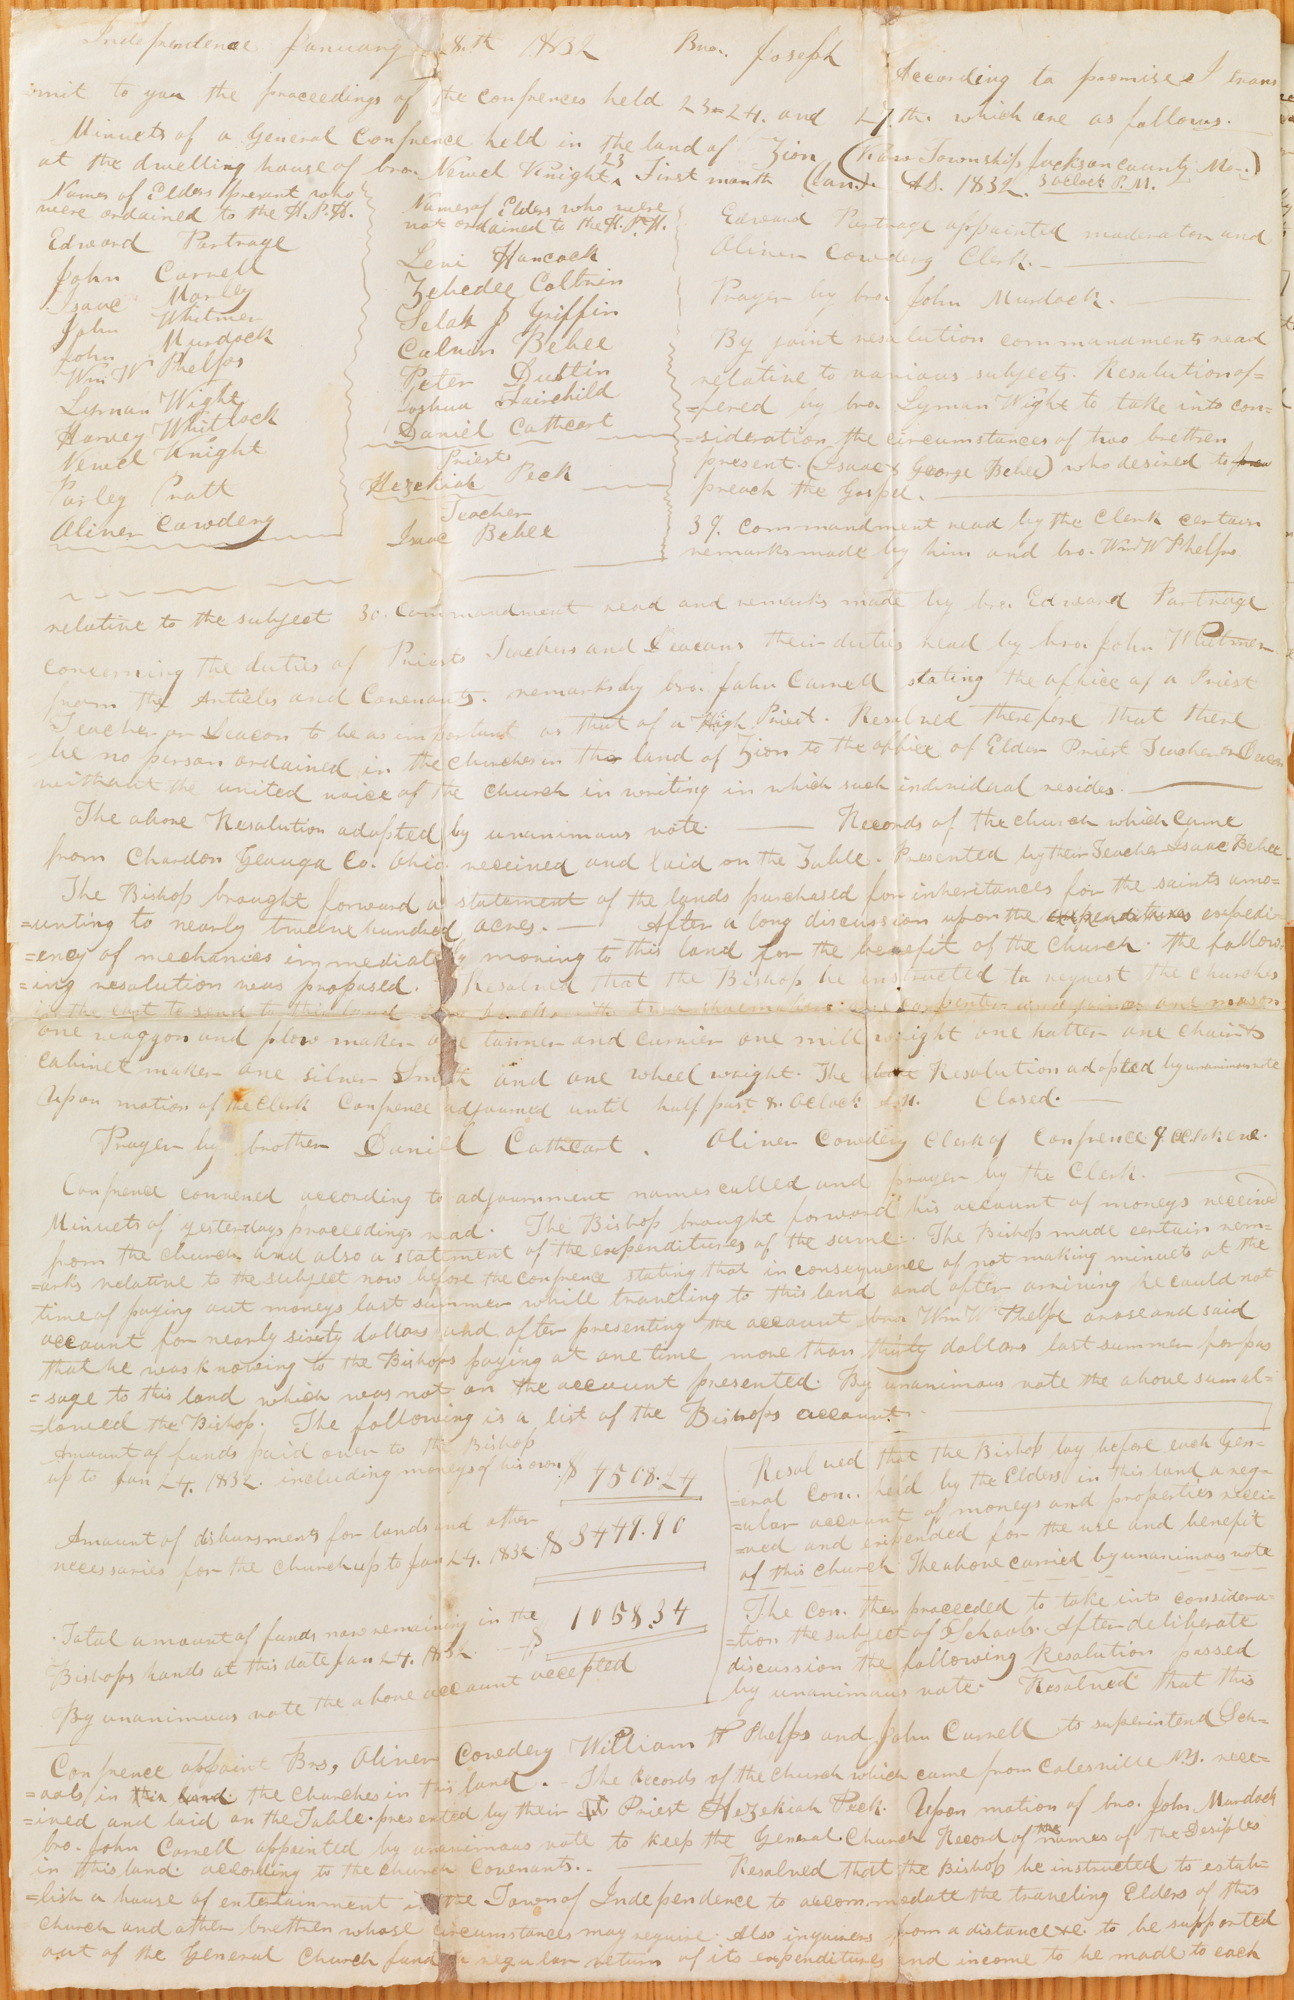 Independence January 28.th 1832 Bro. Joseph According to promise I trans
mit to you the proceedings of the confrences held 23-24. and 27.th. which are as follows.
Minuets of a General Confrence held in the land of Zion (Kaw Township Jackson county Mo.)
at the dwelling house of bro. Newel Knight 23 First month (Jan). AD. 1832. 3 oclock P.M.
Names of Elders present who
were ordained to the H.P.H.
Edward Partrage
John Correll
Isaac Morley
John Whitmer
John Murdock
Wm W Phelps
Lyman Wight
Harvey Whitlock
Newel Knight
Parley Pratt
Oliver Cowdery
Names of Elders who were
not ordained to the H.P.H.
Levi Hancock
Zebedee Coltrin
Selah J Griffin
Calvin Bebee
Peter Dustin
Joshua Fairchild
Daniel Cathcart
Priest
Hezekiah Peck
Teacher
Isaac Bebee
Edward Partrage appointed moderator and
Oliver Cowdery Clerk.
Prayer by bro. John Murdock.
By joint resolution commandments read
relative to various subjects. Resolution of=
=fered by bro. Lyman Wight to take into con=
=sideration the circumstances of two brethren
present. (Isaac & George Bebee) who desired to
preach the Gospel.
39. commandment read by the Clerk certain
remarks made by him and bro. Wm W Phelps
relative to the subject 30. Commandment read and remarks made by bro. Edward Partrage
concerning the duties of Priests Teachers and Deacons their duties read by bro. John Whitmer
from the Articles and Covenants. remarks by bro. John Correll stating the office of a Priest
Teacher or Deacon to be as important as that of a High Priest. Resolved therefore that there
be no person ordained in the churches in the land of Zion to the office of Elder Priest Teacher or Deacon
without the united voice of the church in writing in which such individual resides.
The above Resolution adopted by unanimous vote. Records of the church which came
from Chardon Geauga Co. Ohio received and laid on the Table. Presented by their Teacher Isaac Bebee
The Bishop brought forward a statement of the lands purchased for inheritances for the saints amo=
=unting to nearly twelve hundred acres. After a long discussion upon the expenditures expedi=
=ency of mechanics immediately moving to this land for the benefit of the church. the follow=
=ing resolution was proposed. Resolved that the Bishop be instructed to request the churches
in the east to send to this land two shoemakers one carpenter and joiner one mason
one waggon and plow maker one tanner and currier one mill wright one hatter one chair &
cabinet maker one silver Smith and one wheel wright. The above Resolution adopted by unanimous vote
Upon motion of the Clerk Confrence adjourned until half past 8. oclock A.M. Closed.
Prayer by brother Daniel Cathcart. Oliver Cowdery Clerk of Confrence 9. oclock eve.
Confrence convened according to adjournment names called and prayer by the Clerk.
Minuets of yesterdays proceedings read. The Bishop brought forward his account of moneys received
from the church and also a statement of the expenditures of the same. The Bishop made certain rem=
=arks relative to the subject now before the confrence stating that in consequence of not making minuets at the
time of paying out moneys last summer while traveling to this land and after arriving he could not
account for nearly sixty dollars and after presenting the account bro. Wm W Phelps arose and said
that he was knowing to the Bishops paying at one time more than thirty dollars last summer for pas
=sage to this land which was not on the account presented. By unanimous vote the above sum al=
=lowed the Bishop. The following is a list of the Bishops account.
Amount of funds paid over to the Bishop
up to Jan 24. 1832. including moneys of his own. $ 4508.24
Amount of disbursments for lands and other
necessaries for the church up to Jan 24. 1832. $ 3449.90
Total amount of funds now remaining in the
Bishops hands at this date Jan 24. 1832 $ 1058.34
By unanimous vote the above account accepted
Resolved that the Bishop lay before each Gen=
=eral Con. held by the Elders in this land a reg=
=ular account of moneys and properties recei=
=ved and expended for the use and benefit
of this church. The above carried by unanimous vote
The Con. then proceeded to take into considera=
=tion the subject of Schools. After deliberate
discussion the following Resolution passed
by unanimous vote. Resolved that this
Confrence appoint Brs, Oliver Cowdery William W Phelps and John Correll to superintend Sch=
=ools in this land the Churches in this land. - The Records of the church which came from Colesville N.Y. rece=
=ived and laid on the Table. presented by their Priest Hezekiah Peck. Upon motion of bro. John Murdock
bro. John Correll appointed by unanimous vote to keep the General Church Record of the names of the Desiples
in this land. according to the church Covenants. Resolved that the Bishop be instructed to estab=
=lish a house of entertainment in the Town of Independence to accommodate the traveling Elders of this
church and other brethren whose circumstances may require. Also inquirers from a distance &c. to be supported
out of the General Church fund a regular return of its expenditures and income to be made to each